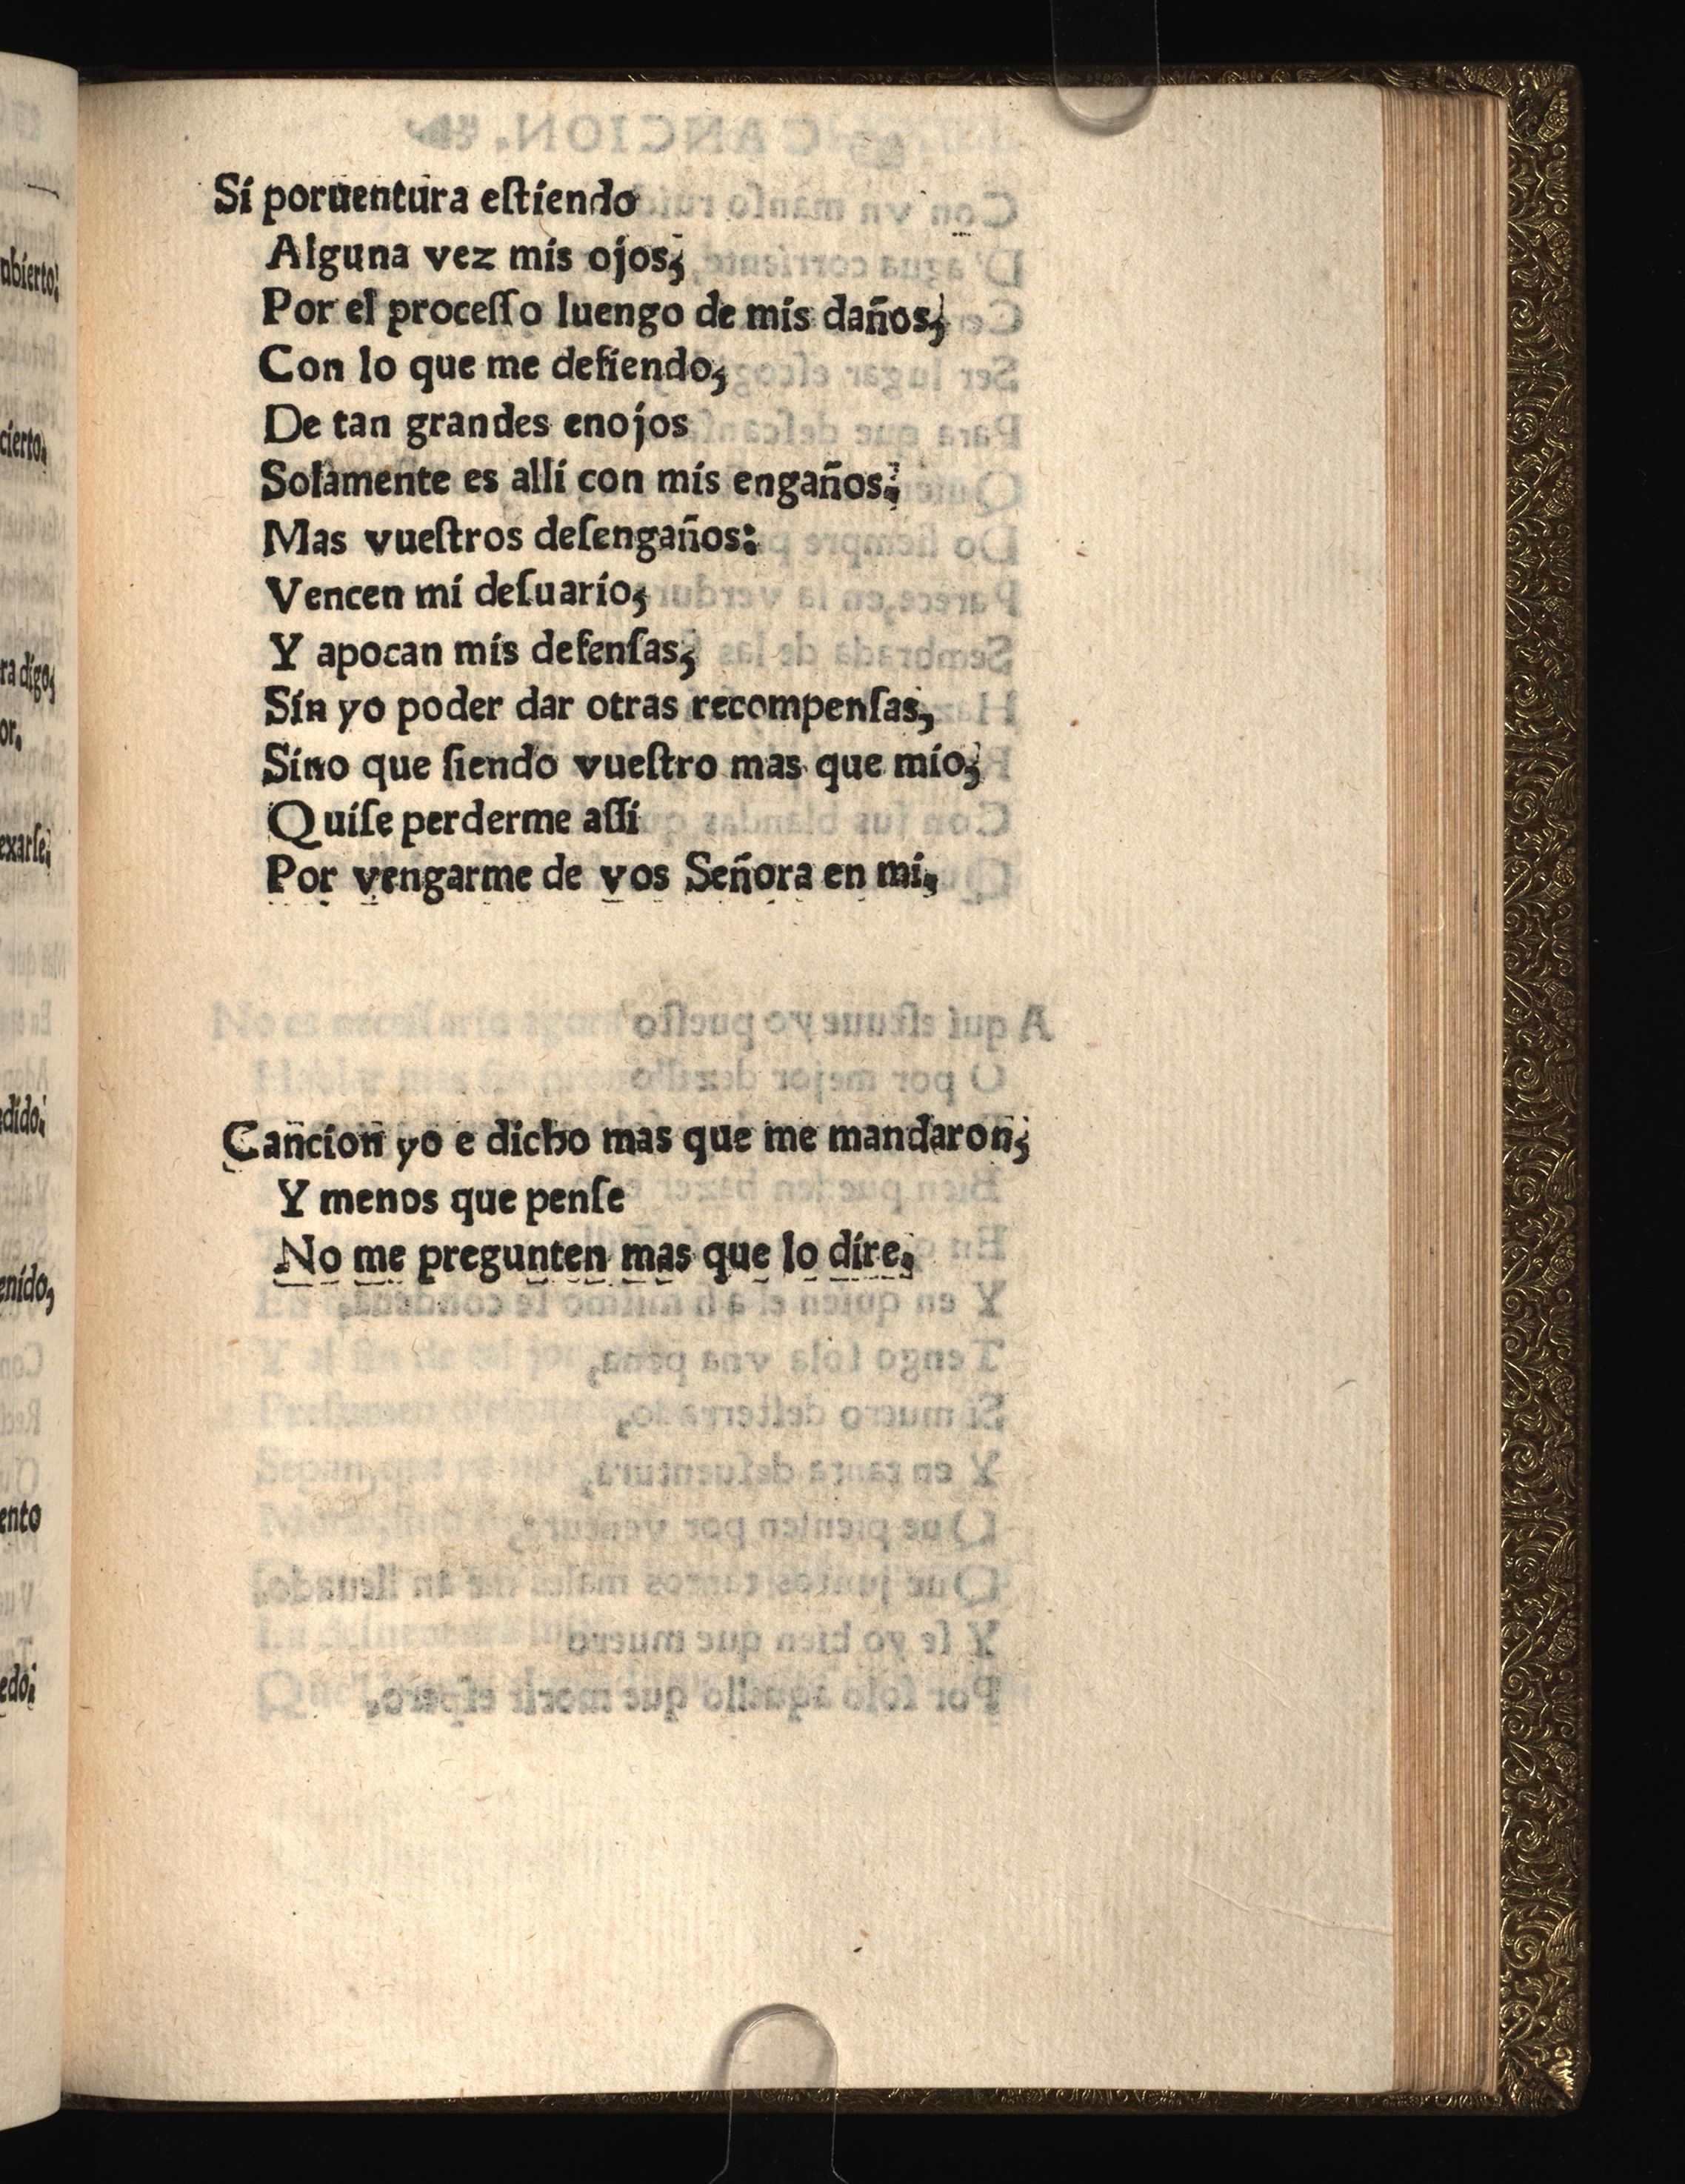 Si poruentura eſtiendo
Alguna vez mis ojos;
Por el proceſſo luengo de mis daños;
Con lo que me defiendo;
De tan grandes enojos
Solamente es alli con mis engaños;
Mas vueſtros deſengaños:
Vencen mi deſuario;
Y apocan mis defenſas;
Sin yo poder dar otras recompenſas,
Sino que ſiendo vueſtro mas que mio;
Quiſe perderme aſſi
Por vengarme de vos Señora en mi,
Cancion yo e dicho mas que me mandaron;
Y menos que penſe
No me pregunten mas que lo dire,